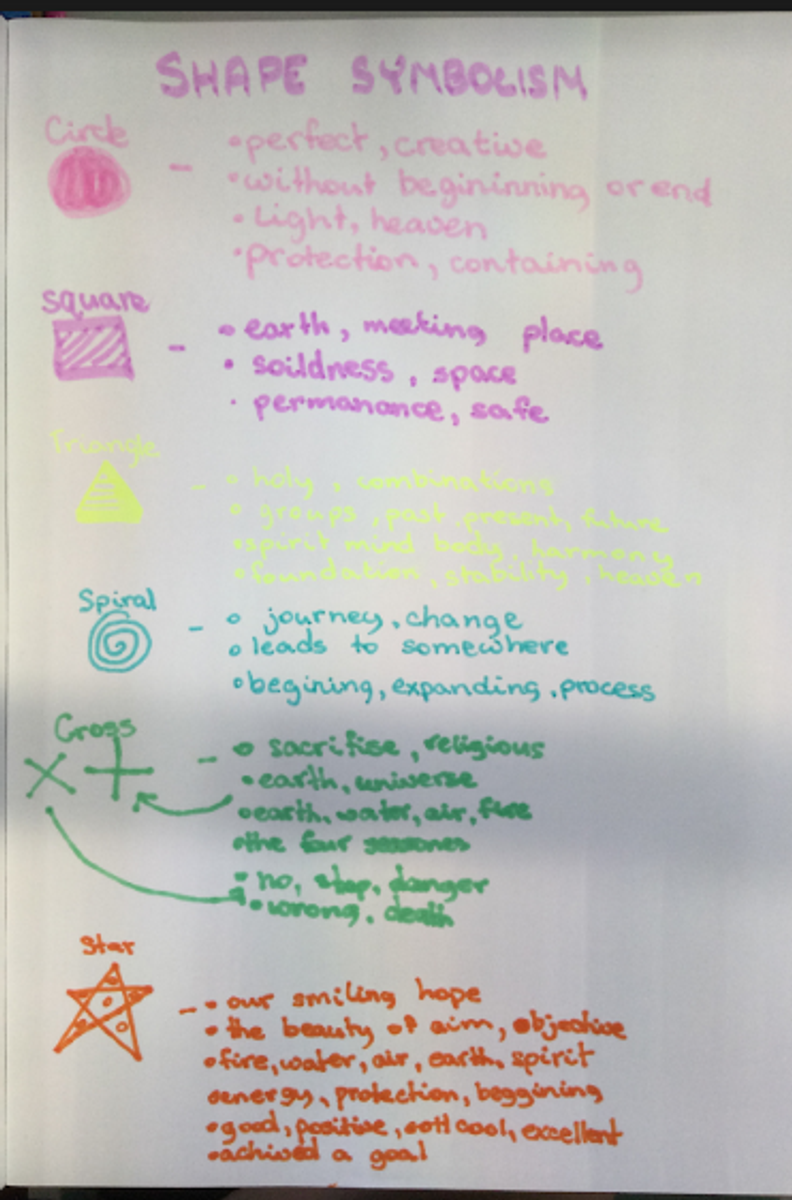 SHAPE SYMBOLISM
Circle
- •perfect, creative
•without begininning or end
•Light, heaven
•protection, containing
square
- •earth, meeting place
• soildness, space
• permanance, safe
Triangle
- • holy, combinations
• groups, past, present, future
•spirit mind body, harmony
•foundation, stability, heaven
Spiral
- • journey, change
• leads to somewhere
•begining, expanding, process
Cross
- • sacrifise, religious
•earth, universe
•earth, water, air, fire
•the four seasones
• no, stop, danger
•wrong, death
Star
- • our smiling hope
• the beauty of aim, objective
•fire, water, air, earth, spirit
•energy, protection, beggining
•good, positive, cool, excellent
•achived a goal